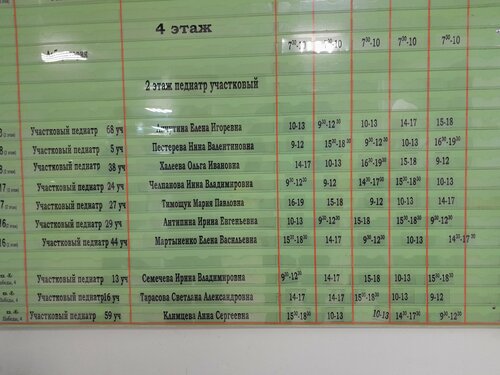 4 этаж
7³⁰-10 7³⁰-10 7³⁰-10 7³⁰-10 7³⁰-10
2 этаж педиатр участковый
Участковый педиатр 68 уч Елена Игоревна 10-13 9³⁰-12³⁰ 10-13 14-17 15-18
Участковый педиатр 5 уч Пестерева Нина Валентиновна 9-12 15³⁰-18³⁰ 9³⁰-12³⁰ 10-13 16³⁰-19³⁰
Участковый педиатр 38 уч Халеева Ольга Ивановна 14-17 10-13 16³⁰-19³⁰ 15-18 9-12
Участковый педиатр 24 уч Челпанова Нина Владимировна 9³⁰-12³⁰ 9-12 14³⁰-17³⁰ 15³⁰-18³⁰ 10-13
Участковый педиатр 27 уч Тимощук Мария Павловна 16-19 15-18 9-12 10-13 14-17
Участковый педиатр 29 уч Антипина Ирина Евгеньевна 10-13 9³⁰-12³⁰ 15-18 15³⁰-18³⁰ 9³⁰-12³⁰
Участковый педиатр 44 уч Мартыненко Елена Васильевна 15³⁰-18³⁰ 14-17 9³⁰-12³⁰ 10-13 14³⁰-17³⁰
Участковый педиатр 13 уч Семечева Ирина Владимировна 9³⁰-12³⁰ 14-17 15-18 10-13 15³⁰-18³⁰
Победы, 4 Участковый педиатр 16 уч Тарасова Светлана Александровна 14-17 14-17 15³⁰-18³⁰ 10-13 9-12
Победы, 4 Участковый педиатр 59 уч Климцева Анна Сергеевна 15³⁰-18³⁰ 10-13 10-13 14³⁰-17³⁰ 9³⁰-12³⁰